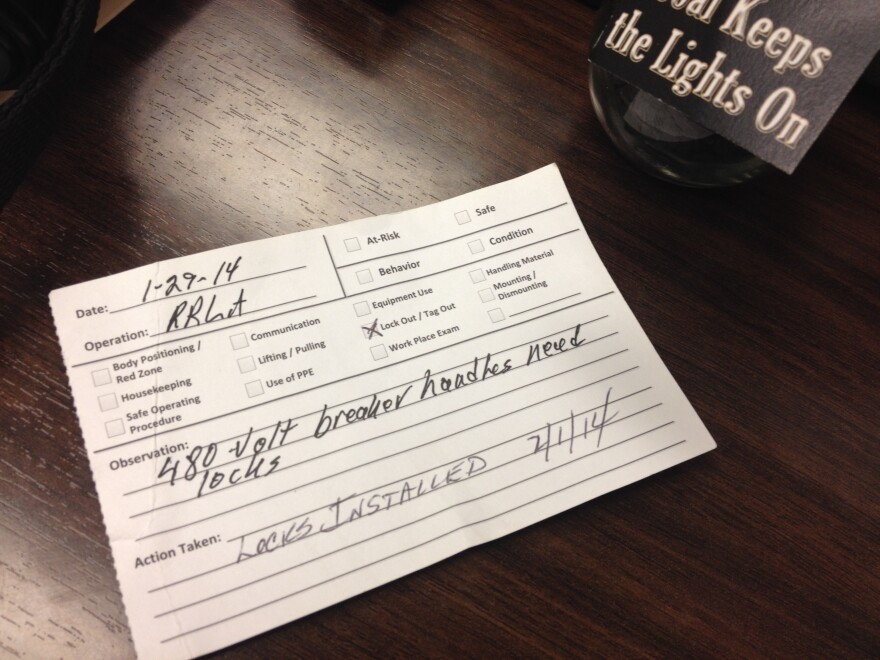 Keeps
the Lights On
Date: 1-29-14
Operation:
At-Risk
Safe
Behavior
Condition
Body Positioning /
Red Zone
Communication
Equipment Use
Handling Material
Housekeeping
Lifting / Pulling
Lock Out / Tag Out
Mounting /
Dismounting
Safe Operating
Procedure
Use of PPE
Work Place Exam
Observation: 480-volt breaker handles need
locks
Action Taken: LOCKS INSTALLED 2/1/14